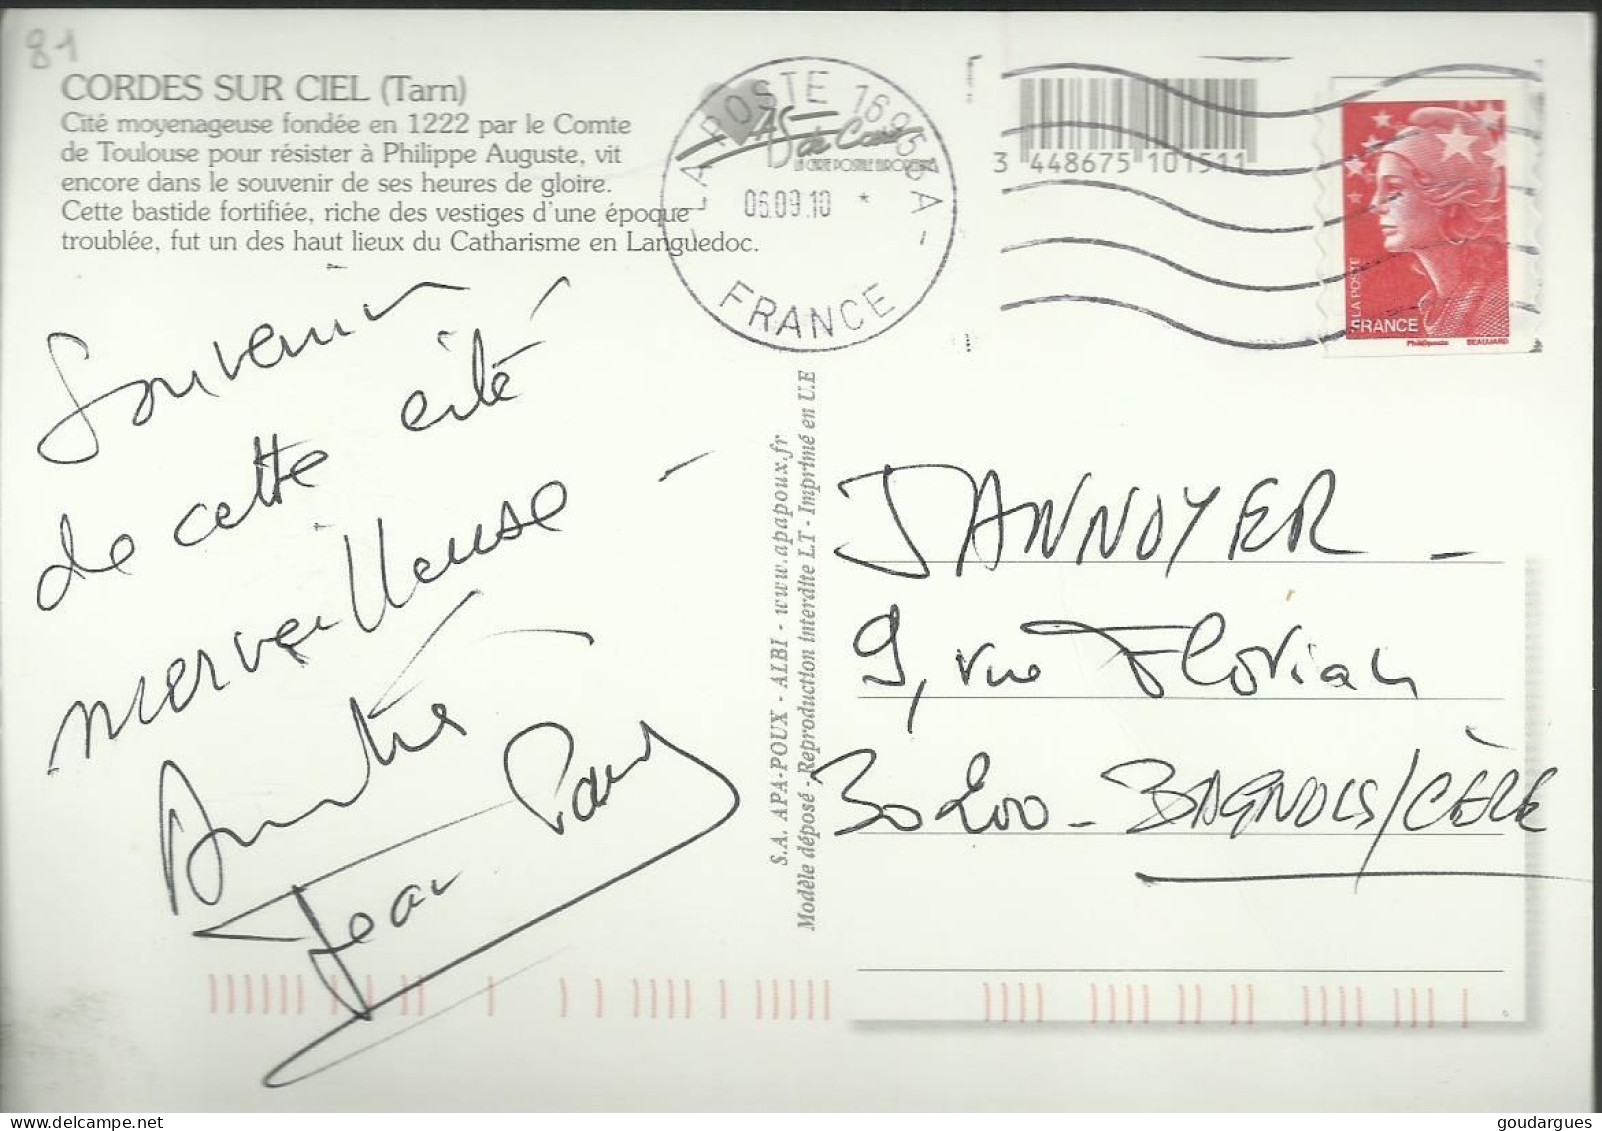 81
CORDES SUR CIEL (Tarn)
Cité moyenageuse fondée en 1222 par le Comte
de Toulouse pour résister à Philippe Auguste, vit
encore dans le souvenir de ses heures de gloire.
Cette bastide fortifiée, riche des vestiges d'une époque
troublée, fut un des haut lieux du Catharisme en Languedoc.
LA POSTE 16953A -
06.09.10 *
FRANCE
AS de Cœur
LA CARTE POSTALE EUROPÉENNE
3 448675 101511
LA POSTE
FRANCE
Phil@poste BEAUJARD
Souvenir
de cette cité
merveilleuse -
Jean Paul
S.A. APA-POUX - ALBI - www.apapoux.fr
Modèle déposé - Reproduction interdite LT - Imprimé en U.E
JANNOYER -
9, rue Florian
30200 - BAGNOLS/CÈZE
goudargues